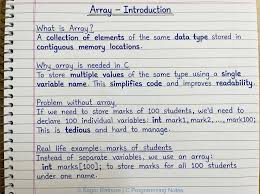 Array – Introduction
What is Array?
A collection of elements of the same data type stored in
contiguous memory locations.
Why array is needed in C
To store multiple values of the same type using a single
variable name. This simplifies code and improves readability.
Problem without array
If we need to store marks of 100 students, we'd need to
declare 100 individual variables: int mark1, mark2,..., mark100;
This is tedious and hard to manage.
Real life example: marks of students
Instead of separate variables, we use an array:
int marks[100]; to store marks for all 100 students
under one name.
| C Programming Notes